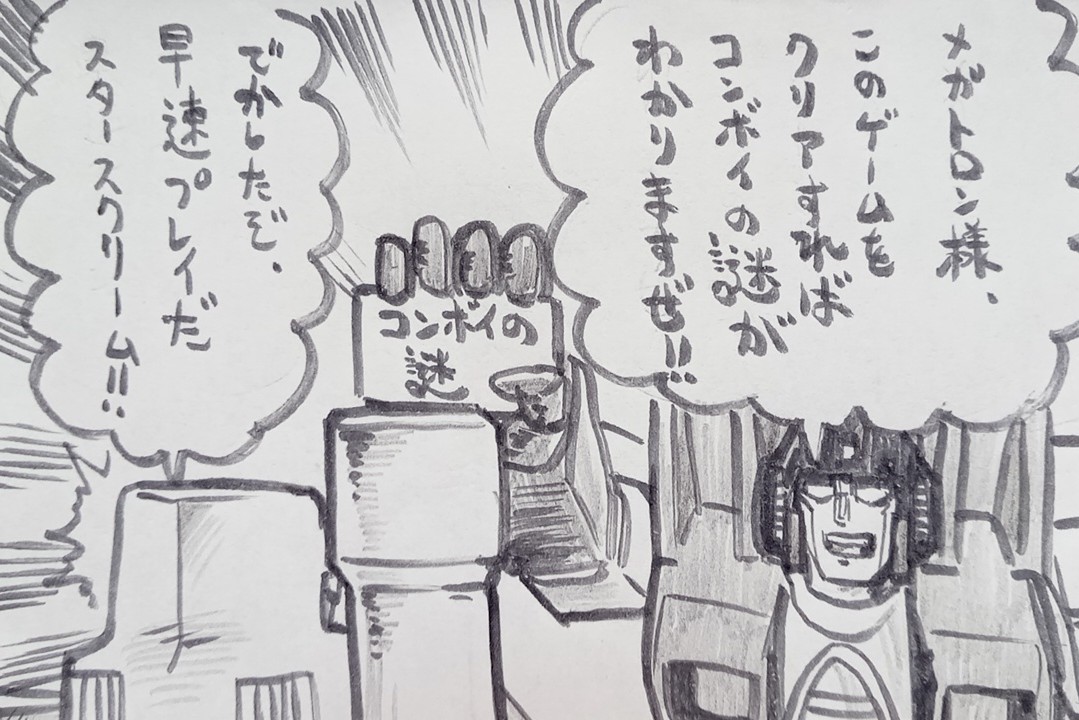 メガトロン様、
このゲームを
クリアすれば
コンボイの謎が
わかりますぜ!!
コンボイの
謎
でかしたぞ、
早速プレイだ
スタースクリーム!!